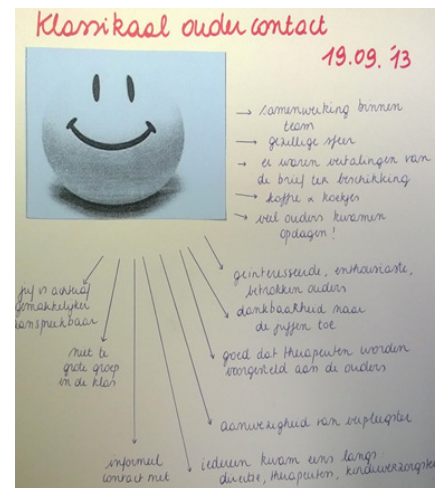 Klassikaal oudercontact
19.09.'13
→ samenwerking binnen
team
→ gezellige sfeer
→ er waren vertalingen van
de brief ter beschikking
→ koffie & koekjes
→ veel ouders kwamen
opdagen!
geïnteresseerde, enthousiaste,
betrokken ouders
dankbaarheid naar
de juffen toe
goed dat therapeuten worden
voorgesteld aan de ouders
aanwezigheid van verpleegster
iedereen kwam eens langs:
directie, therapeuten, kinderverzorgster
informeel
contact met
niet te
grote groep
in de klas
juf is achteraf
gemakkelijker
aanspreekbaar